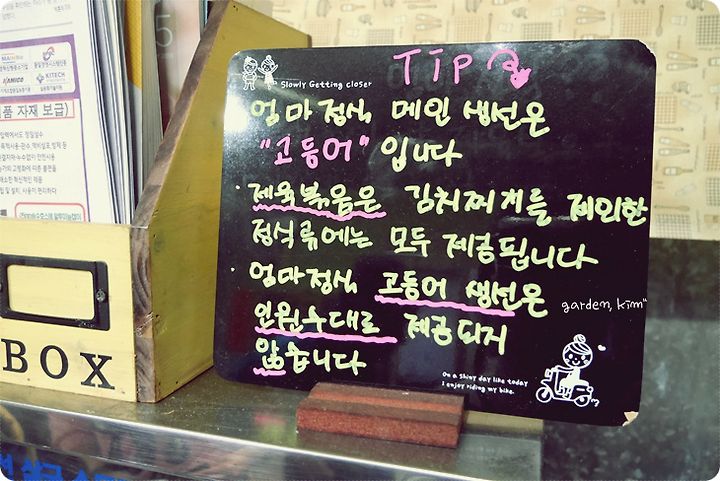 TIP
Slowly Getting closer
엄마정식 메인 생선은
"고등어" 입니다
· 제육볶음은 김치찌개를 제외한
정식류에는 모두 제공됩니다
· 엄마정식 고등어 생선은
인원수대로 제공되지
않습니다
garden, kim"
On a shiny day like today
I enjoy riding my bike.
BOX
KITECH
품 자재 보급)
5